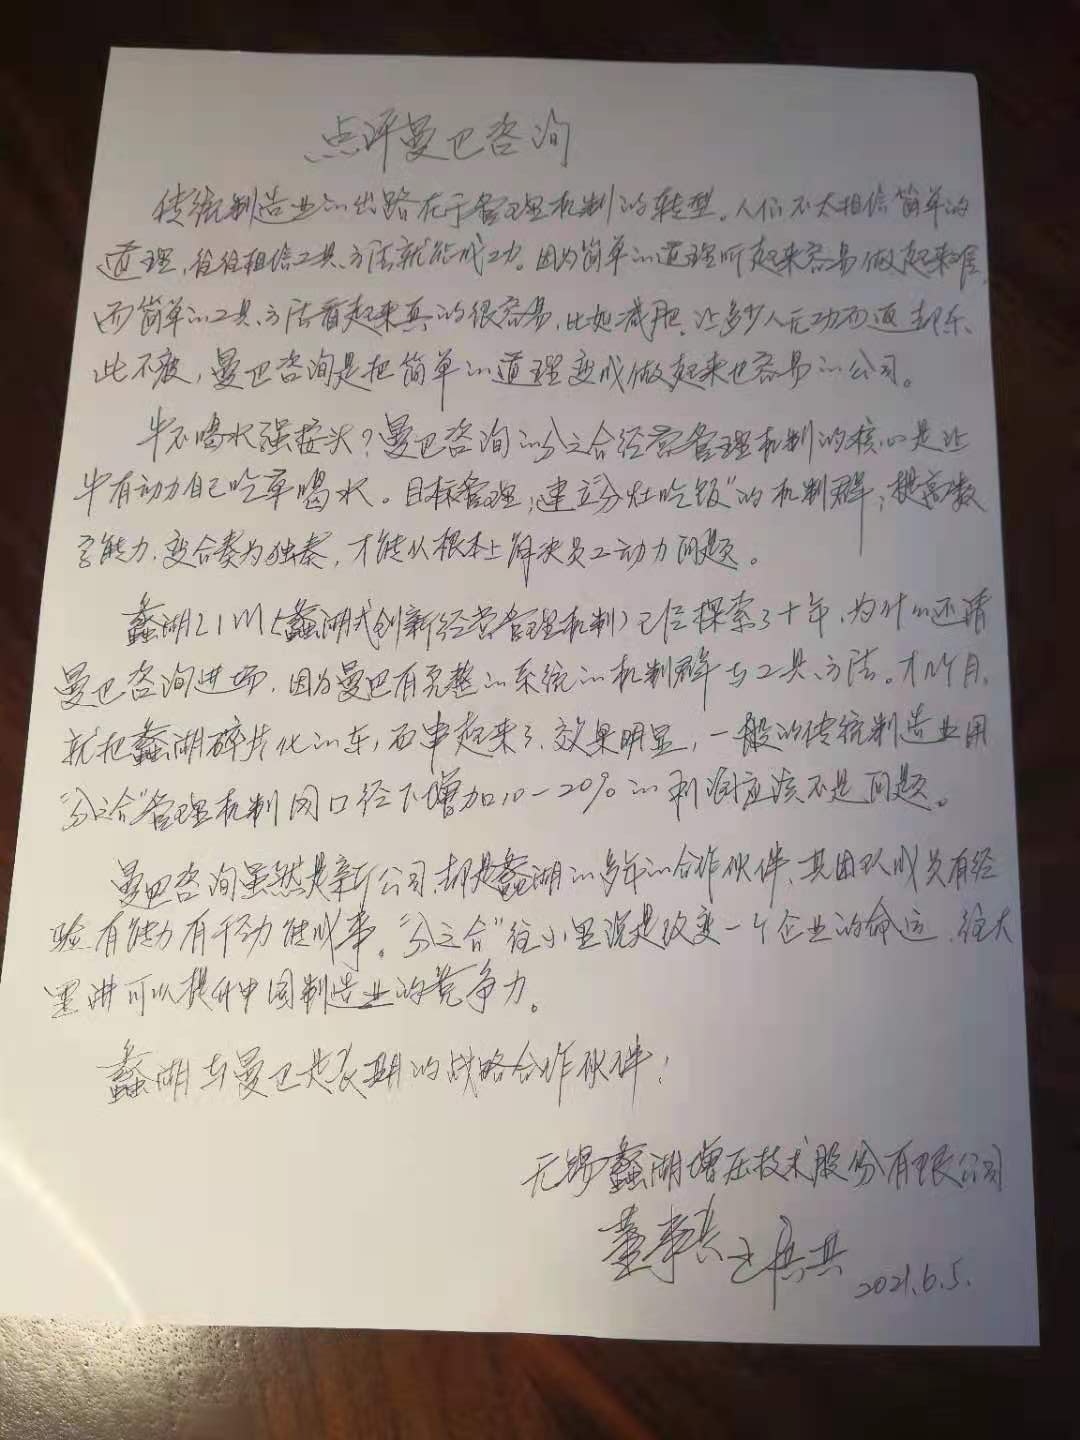 点评曼巴咨询
传统制造业的出路在于管理机制的转型。人们不太相信简单的
道理，往往相信工具、方法就能成功。因为简单的道理听起来容易做起来难，
而简单的工具、方法看起来真的很容易，比如减肥，让多少人无功而返却乐
此不疲，曼巴咨询是把简单的道理变成做起来也容易的公司。
牛不喝水强按头？曼巴咨询的分之合经营管理机制的核心是让
牛有动力自己吃草喝水。目标管理，建立“分灶吃饭”的机制群，提高数
字能力，变合奏为独奏，才能从根本上解决员工动力问题。
蠡湖（蠡湖式创新经营管理机制）已经探索了十年，为什么还请
曼巴咨询进场，因为曼巴有完整的系统的机制群与工具、方法。才几个月，
就把蠡湖碎片化的东西串起来了，效果明显，一般的传统制造业用
“分之合”管理机制同口径下增加10-20%的利润应该不是问题。
曼巴咨询虽然是新公司，却是蠡湖的多年的合作伙伴，其团队成员有经
验有能力有干劲能成事。“分之合”往小里说是改变一个企业的命运，往大
里讲可以提升中国制造业的竞争力。
蠡湖与曼巴是长期的战略合作伙伴！
无锡蠡湖增压技术股份有限公司
董事长 王洪其 2021.6.5.